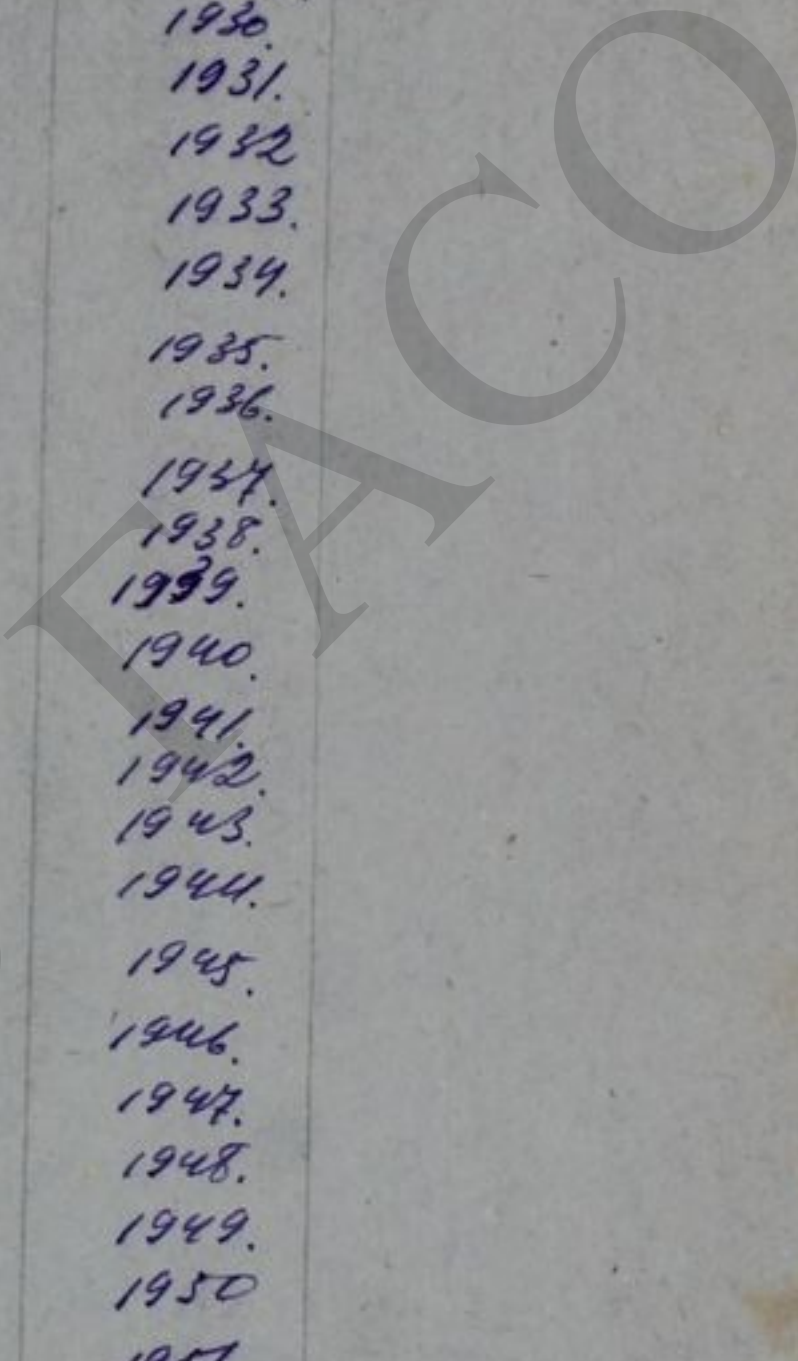 1930.
1931.
1932
1933.
1934.
1935.
1936.
1937.
1938.
1939.
1940.
1941.
1942.
1943.
1944.
1945.
1946.
1947.
1948.
1949.
1950
1951
ГАСО